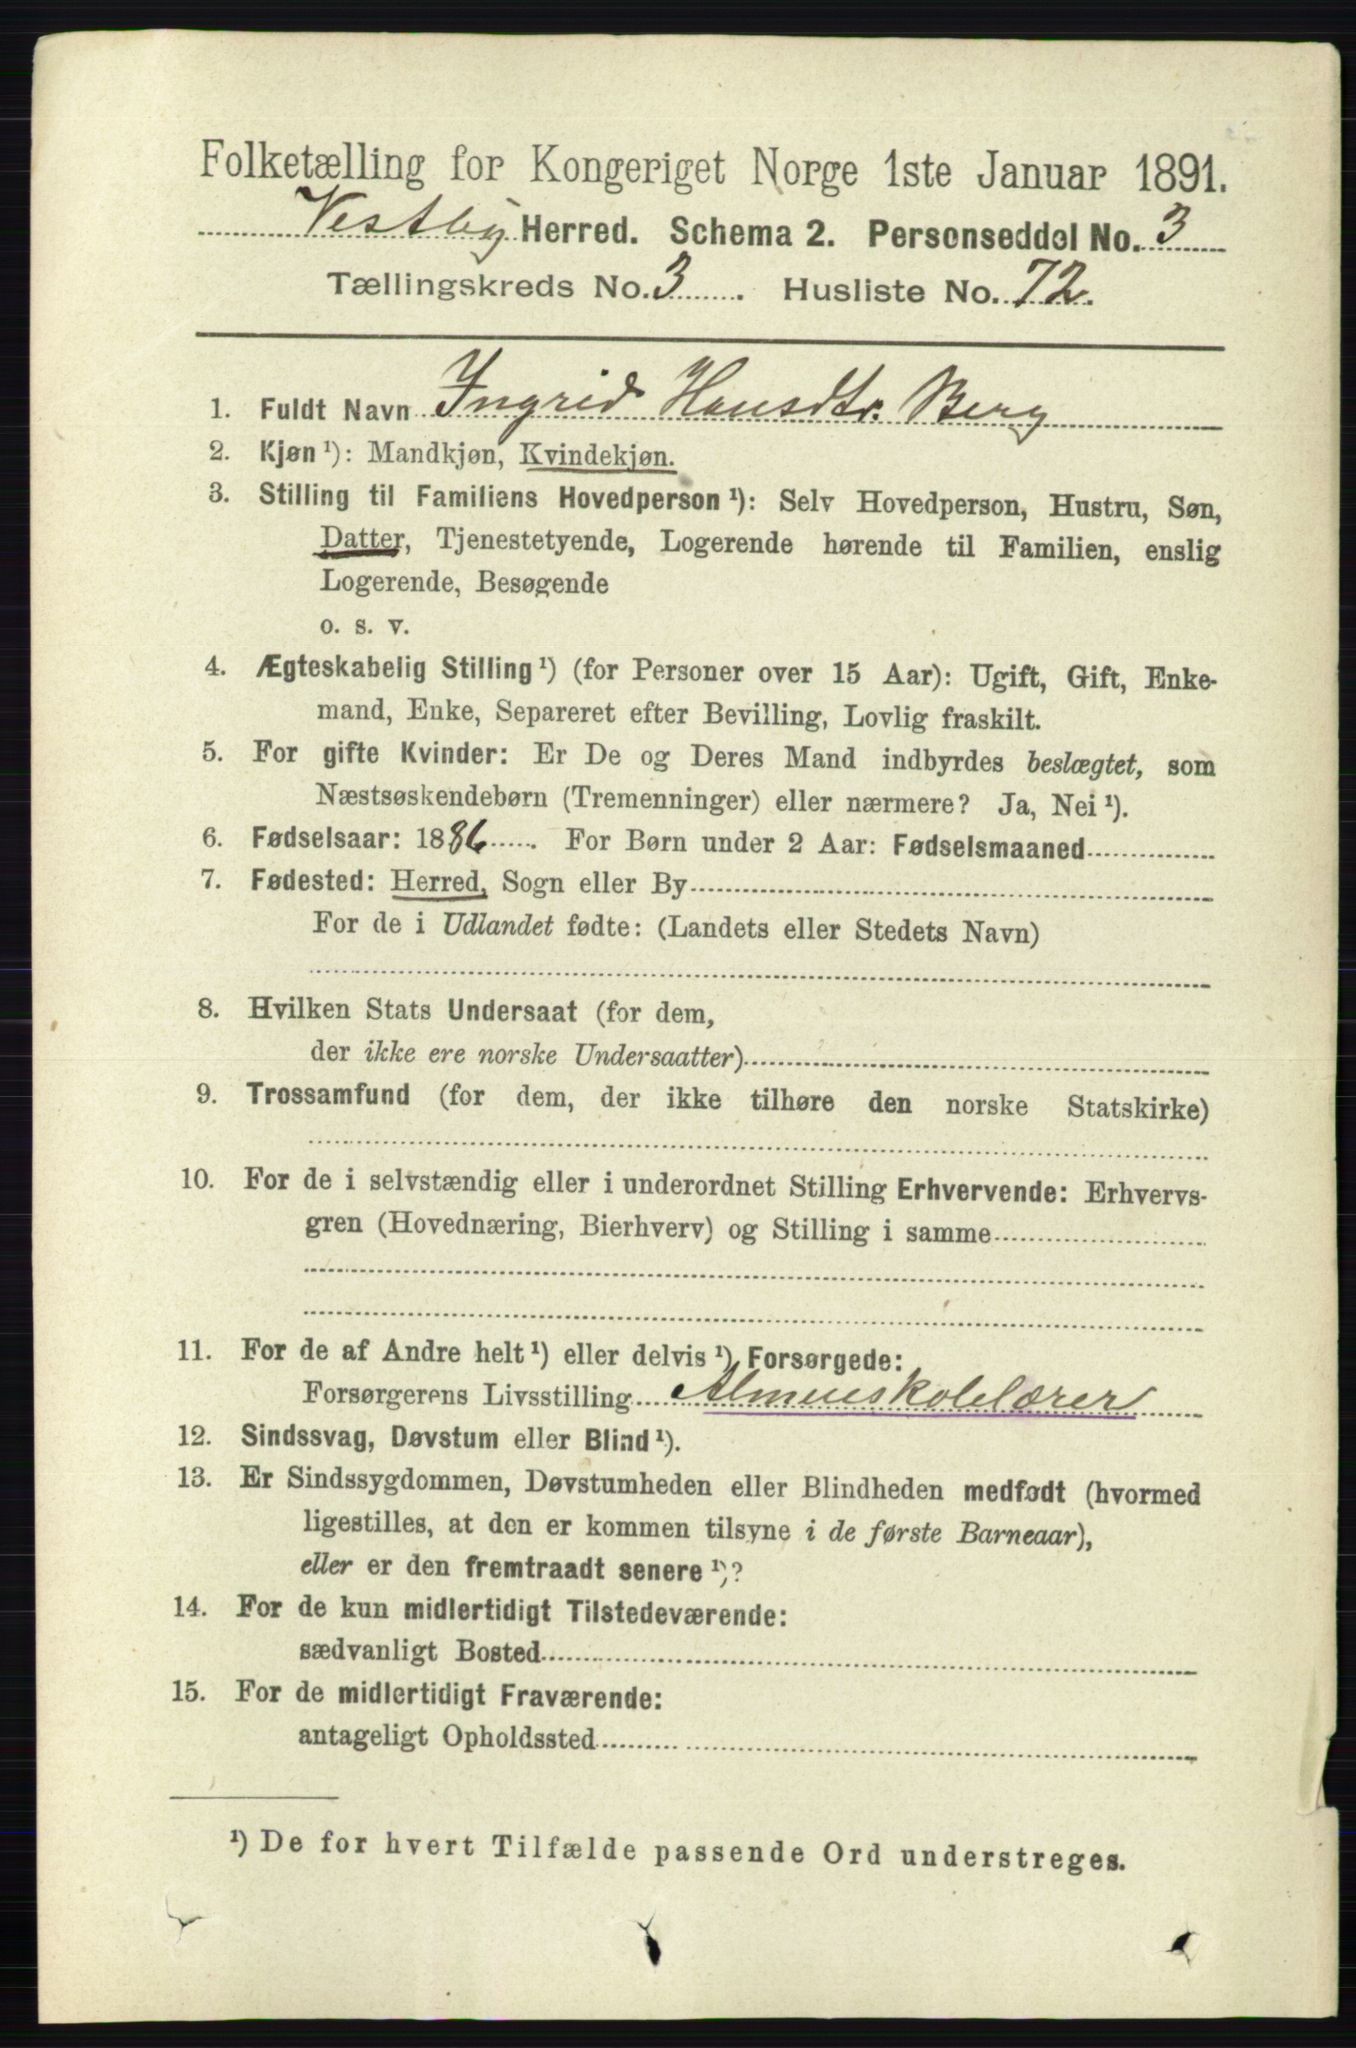 Folketælling for Kongeriget Norge 1ste Januar 1891.
Vestby Herred. Schema 2. Personseddel No. 3
Tællingskreds No. 3. Husliste No. 72.
1. Fuldt Navn Ingrid Hansdtr. Berg
2. Kjøn ¹): Mandkjøn, Kvindekjøn.
3. Stilling til Familiens Hovedperson ¹): Selv Hovedperson, Hustru, Søn,
Datter, Tjenestetyende, Logerende hørende til Familien, enslig
Logerende, Besøgende
o. s. v.
4. Ægteskabelig Stilling ¹) (for Personer over 15 Aar): Ugift, Gift, Enke-
mand, Enke, Separeret efter Bevilling, Lovlig fraskilt.
5. For gifte Kvinder: Er De og Deres Mand indbyrdes beslægtet, som
Næstsøskendebørn (Tremenninger) eller nærmere? Ja, Nei ¹).
6. Fødselsaar: 1886. For Børn under 2 Aar: Fødselsmaaned
7. Fødested: Herred, Sogn eller By
For de i Udlandet fødte: (Landets eller Stedets Navn)
8. Hvilken Stats Undersaat (for dem,
der ikke ere norske Undersaatter)
9. Trossamfund (for dem, der ikke tilhøre den norske Statskirke)
10. For de i selvstændig eller i underordnet Stilling Erhvervende: Erhvervs-
gren (Hovednæring, Bierhverv) og Stilling i samme
11. For de af Andre helt ¹) eller delvis ¹) Forsørgede:
Forsørgerens Livsstilling Almueskolelærer
12. Sindssvag, Døvstum eller Blind ¹).
13. Er Sindssygdommen, Døvstumheden eller Blindheden medfødt (hvormed
ligestilles, at den er kommen tilsyne i de første Barneaar),
eller er den fremtraadt senere ¹)?
14. For de kun midlertidigt Tilstedeværende:
sædvanligt Bosted
15. For de midlertidigt Fraværende:
antageligt Opholdssted
¹) De for hvert Tilfælde passende Ord understreges.